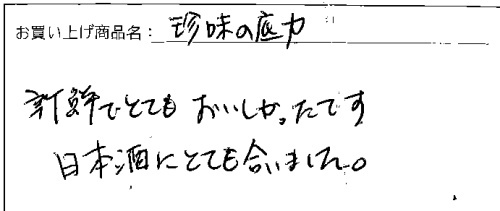 お買い上げ商品名：珍味の底力
新鮮でとても おいしかったです
日本酒にとても合いました。